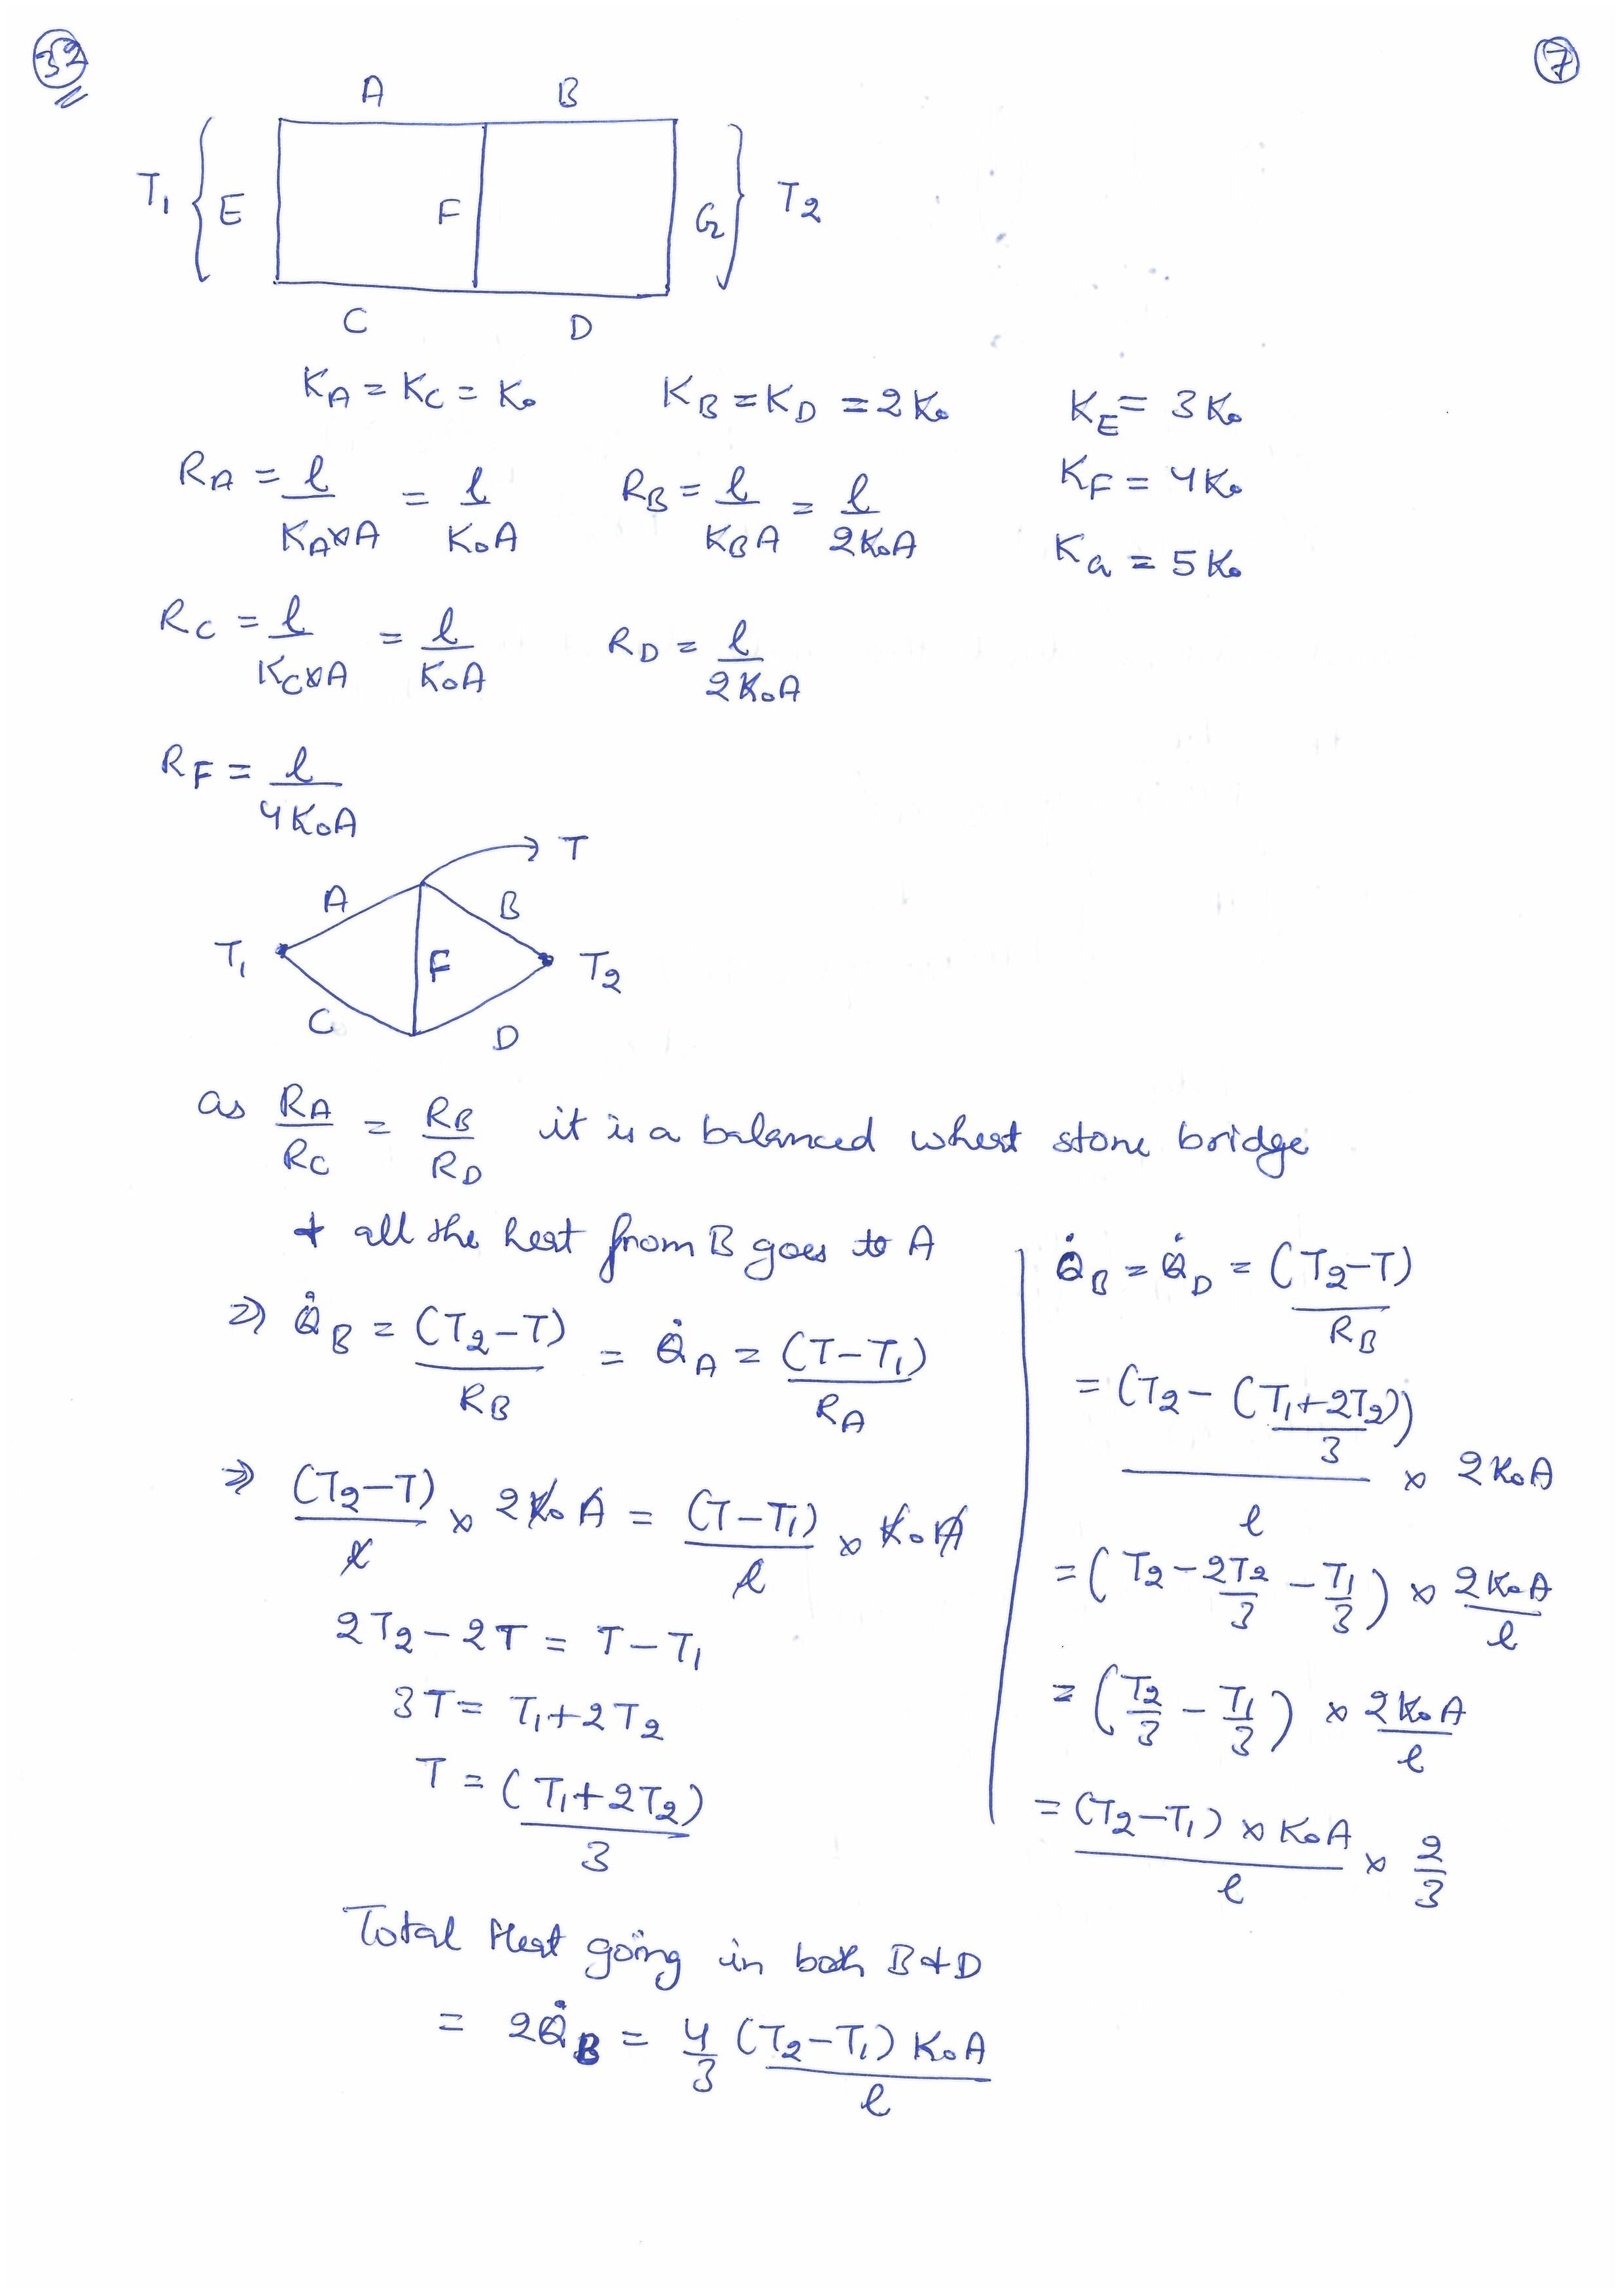 32 7
A B
T₁ { E F G } T₂
C D
K_A = K_C = K₀ K_B = K_D = 2K₀ K_E = 3K₀
R_A = l/(K_A×A) = l/(K₀A) R_B = l/(K_B A) = l/(2K₀A) K_F = 4K₀
K_G = 5K₀
R_C = l/(K_C×A) = l/(K₀A) R_D = l/(2K₀A)
R_F = l/(4K₀A)
T
A B
T₁ F T₂
C D
as R_A/R_C = R_B/R_D it is a balanced wheat stone bridge
+ all the heat from B goes to A
⇒ Q̇_B = (T₂-T)/R_B = Q̇_A = (T-T₁)/R_A
⇒ (T₂-T)/l × 2K₀A = (T-T₁)/l × K₀A
2T₂ - 2T = T - T₁
3T = T₁+2T₂
T = (T₁+2T₂)/3
Q̇_B = Q̇_D = (T₂-T)/R_B
= (T₂ - (T₁+2T₂)/3)/l × 2K₀A
= (T₂ - 2T₂/3 - T₁/3) × 2K₀A/l
= (T₂/3 - T₁/3) × 2K₀A/l
= (T₂-T₁) × K₀A/l × 2/3
Total Heat going in both B+D
= 2Q̇_B = 4/3 (T₂-T₁) K₀A/l